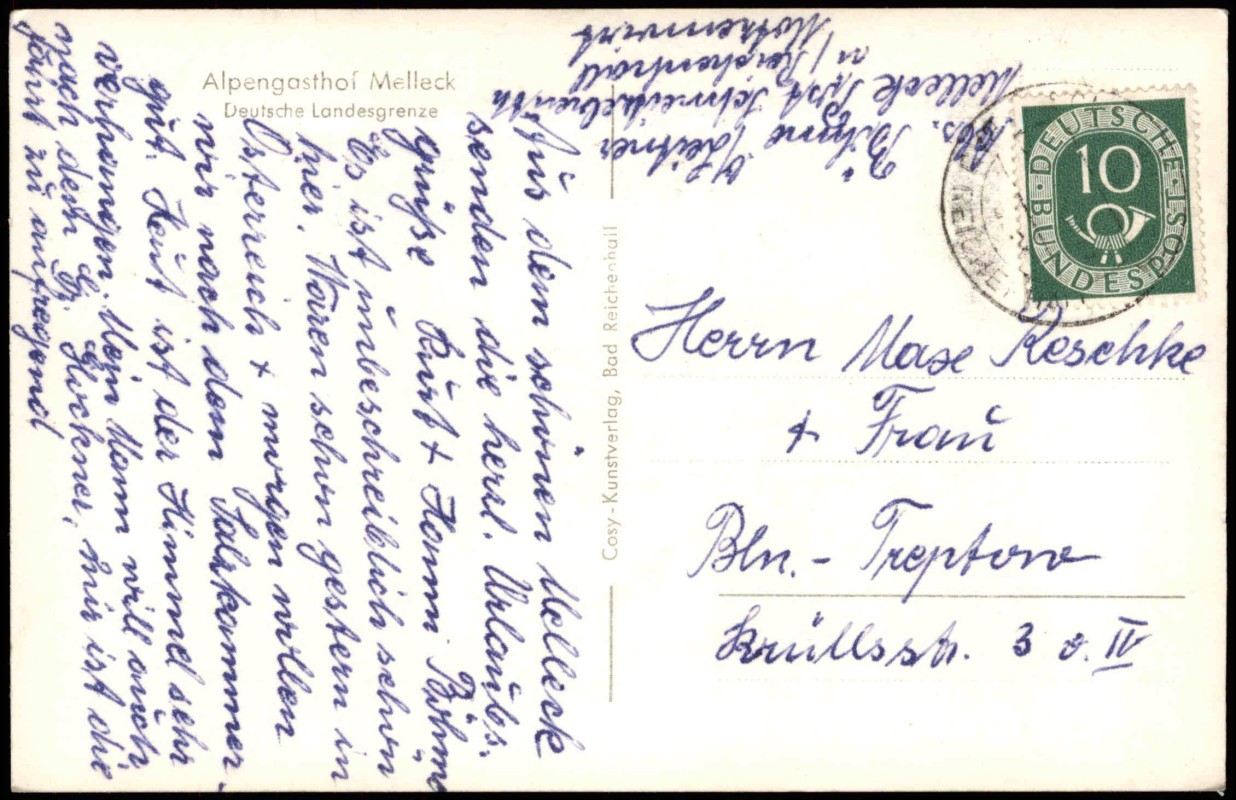 Alpengasthof Melleck
Deutsche Landesgrenze
Aus dem schönen Melleck
senden die herzl. Urlaubs-
grüße Kurt + Hanni Böhme
Es ist unbeschreiblich schön
hier. Waren schon gestern in
Österreich + morgen wollen
wir nach dem Salzkammer-
gut. Heut ist der Himmel sehr
verhangen. Mein Mann will auch
nach dem Gr. Glockner, mir ist die
Fahrt zu aufregend
Abs. Böhme
b/ Leitner
Melleck Post Schneizlreuth
n/ Reichenhall
Cosy-Kunstverlag, Bad Reichenhall
DEUTSCHE BUNDESPOST
10
Herrn Max Reschke
+ Frau
Bln.- Treptow
Krüllsstr. 3 v. IV